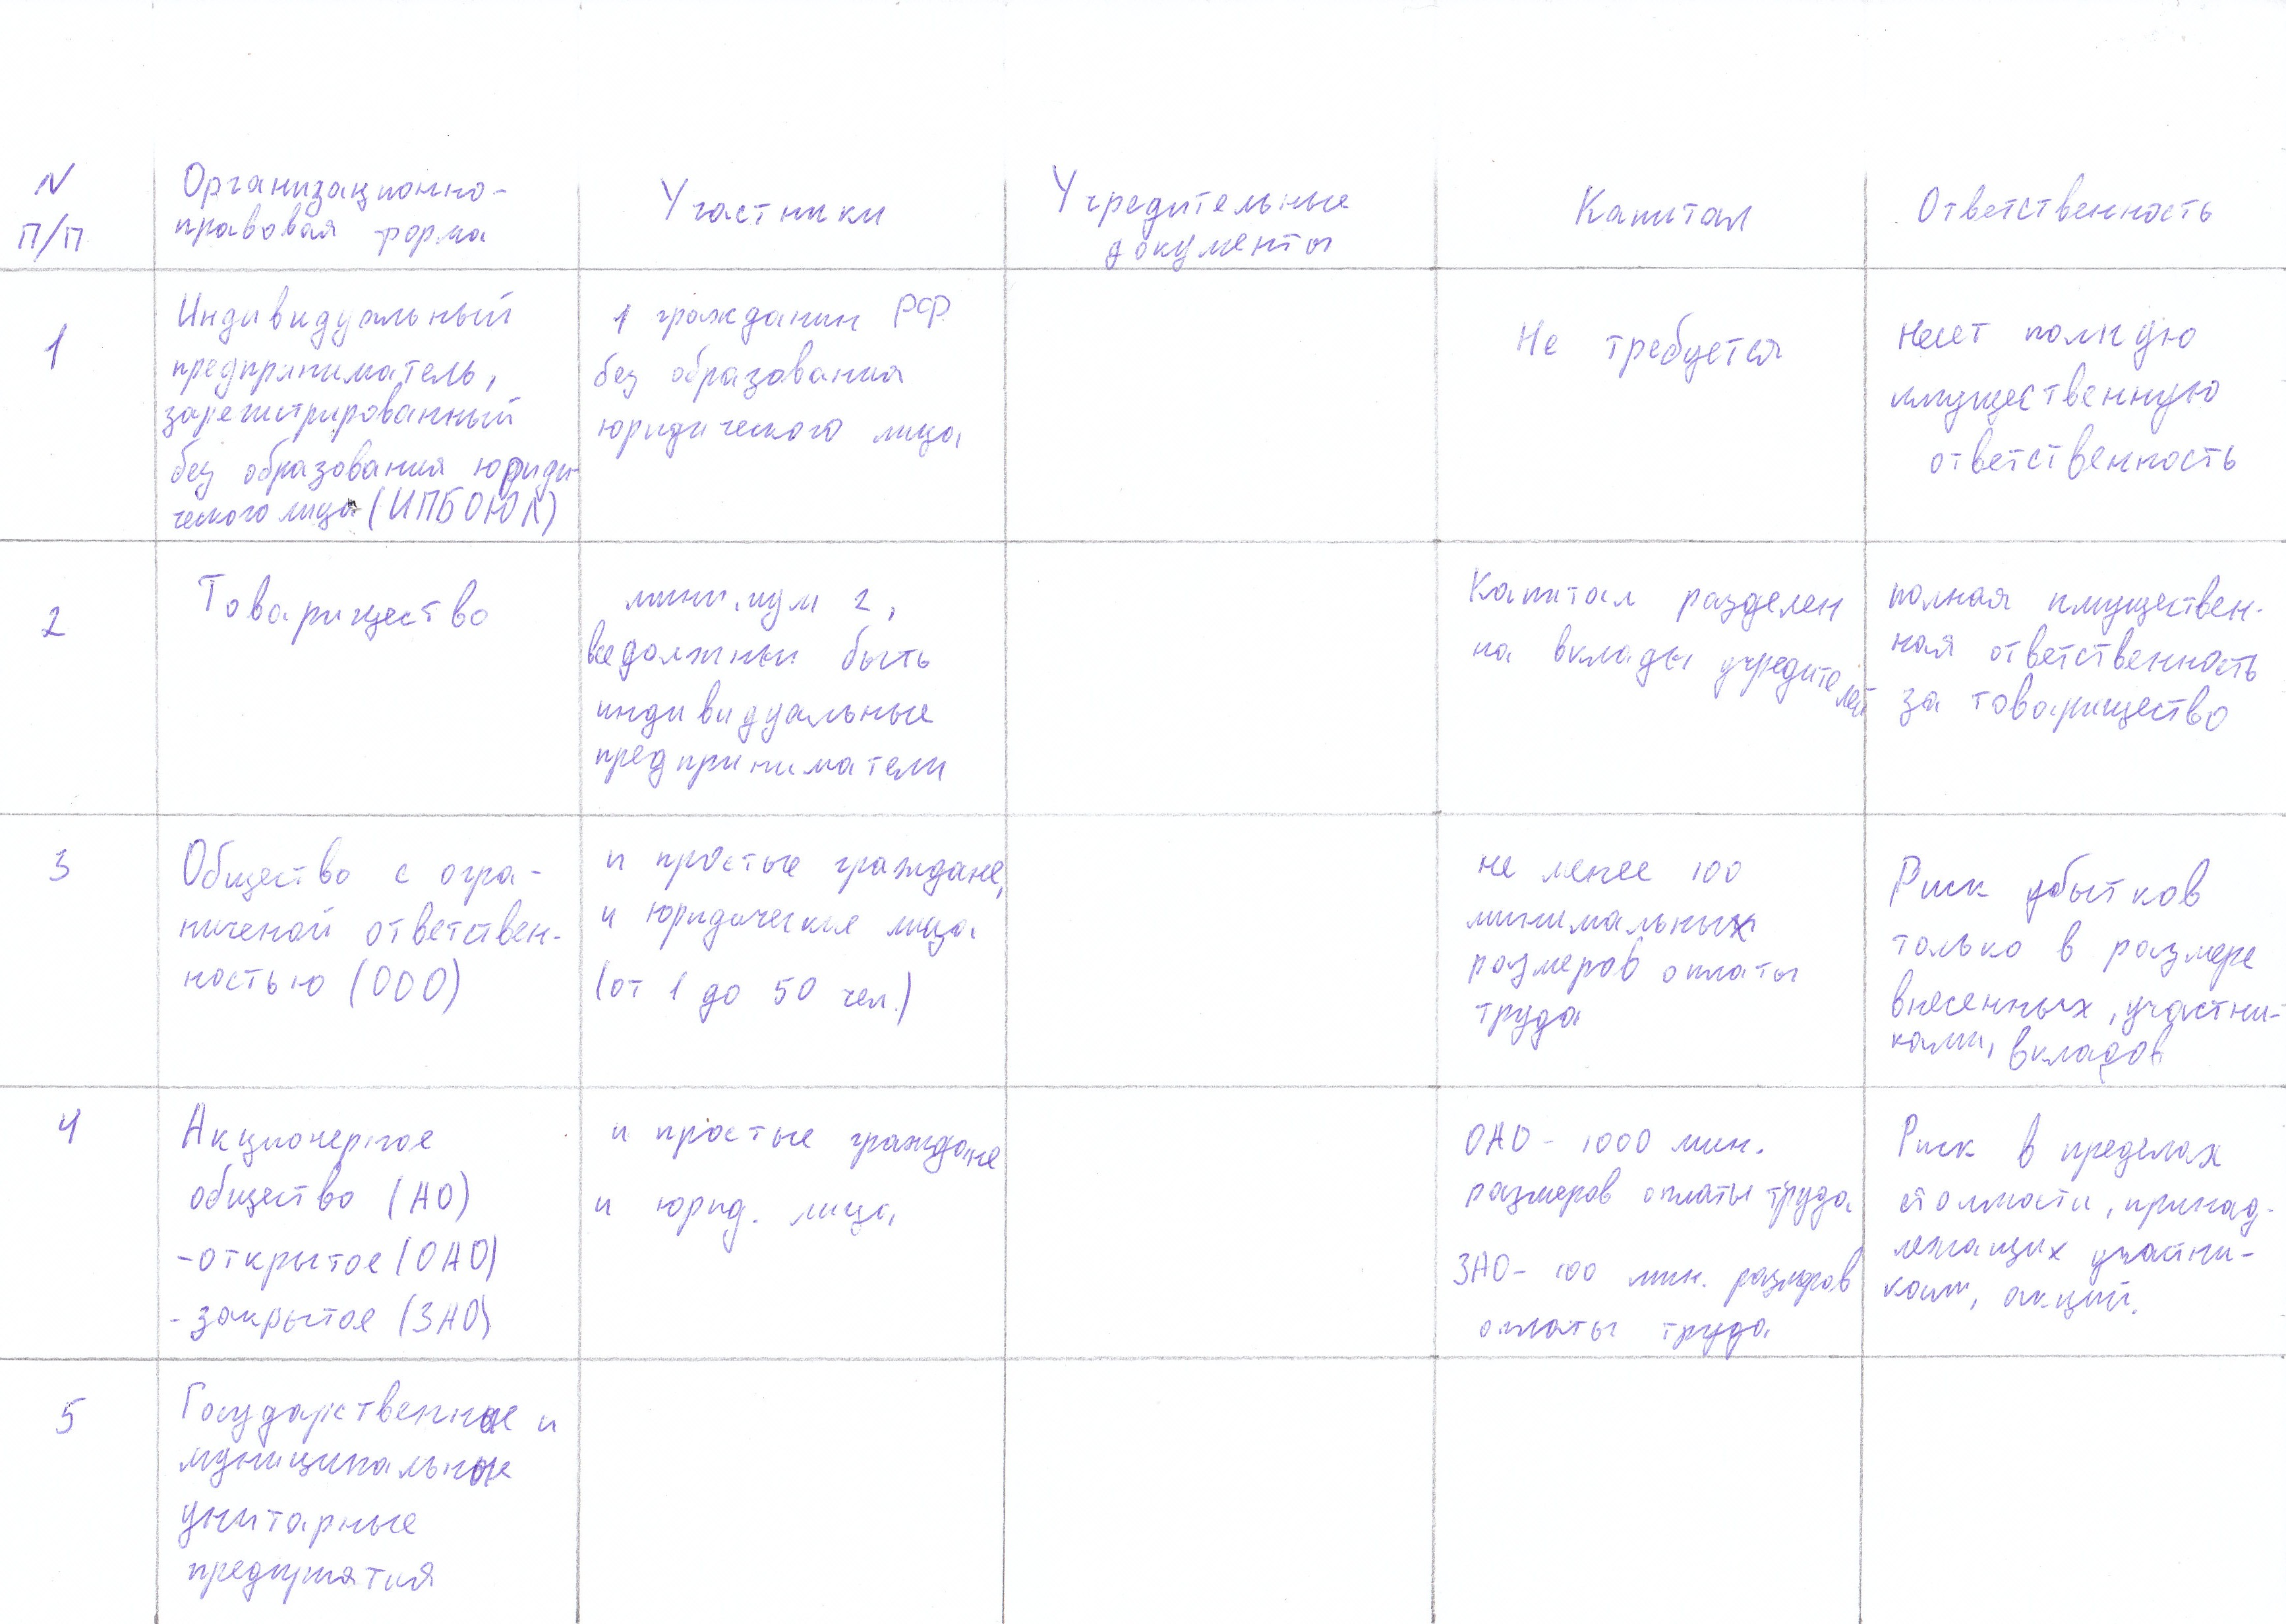 N
п/п
Организационно-
правовая форма
Участники
Учредительные
документы
Капитал
Ответственность
1
Индивидуальный
предприниматель,
зарегистрированный
без образования юриди-
ческого лица (ИПБОЮЛ)
1 гражданин РФ
без образования
юридического лица
Не требуется
несет полную
имущественную
ответственность
2
Товарищество
минимум 2,
все должны быть
индивидуальные
предприниматели
Капитал разделен
на вклады учредителей
полная имуществен-
ная ответственность
за товарищество
3
Общество с огра-
ниченой ответствен-
ностью (ООО)
и простые граждане,
и юридические лица
(от 1 до 50 чел.)
не менее 100
минимальных
размеров оплаты
труда
Риск убытков
только в размере
внесенных, участни-
ками, вкладов
4
Акционерное
общество (АО)
-открытое (ОАО)
-закрытое (ЗАО)
и простые граждане
и юрид. лица
ОАО - 1000 мин.
размеров оплаты труда
ЗАО - 100 мин. размеров
оплаты труда
Риск в пределах
стоимости, принад-
лежащих участни-
кам, акций.
5
Государственные и
муниципальные
унитарные
предприятия